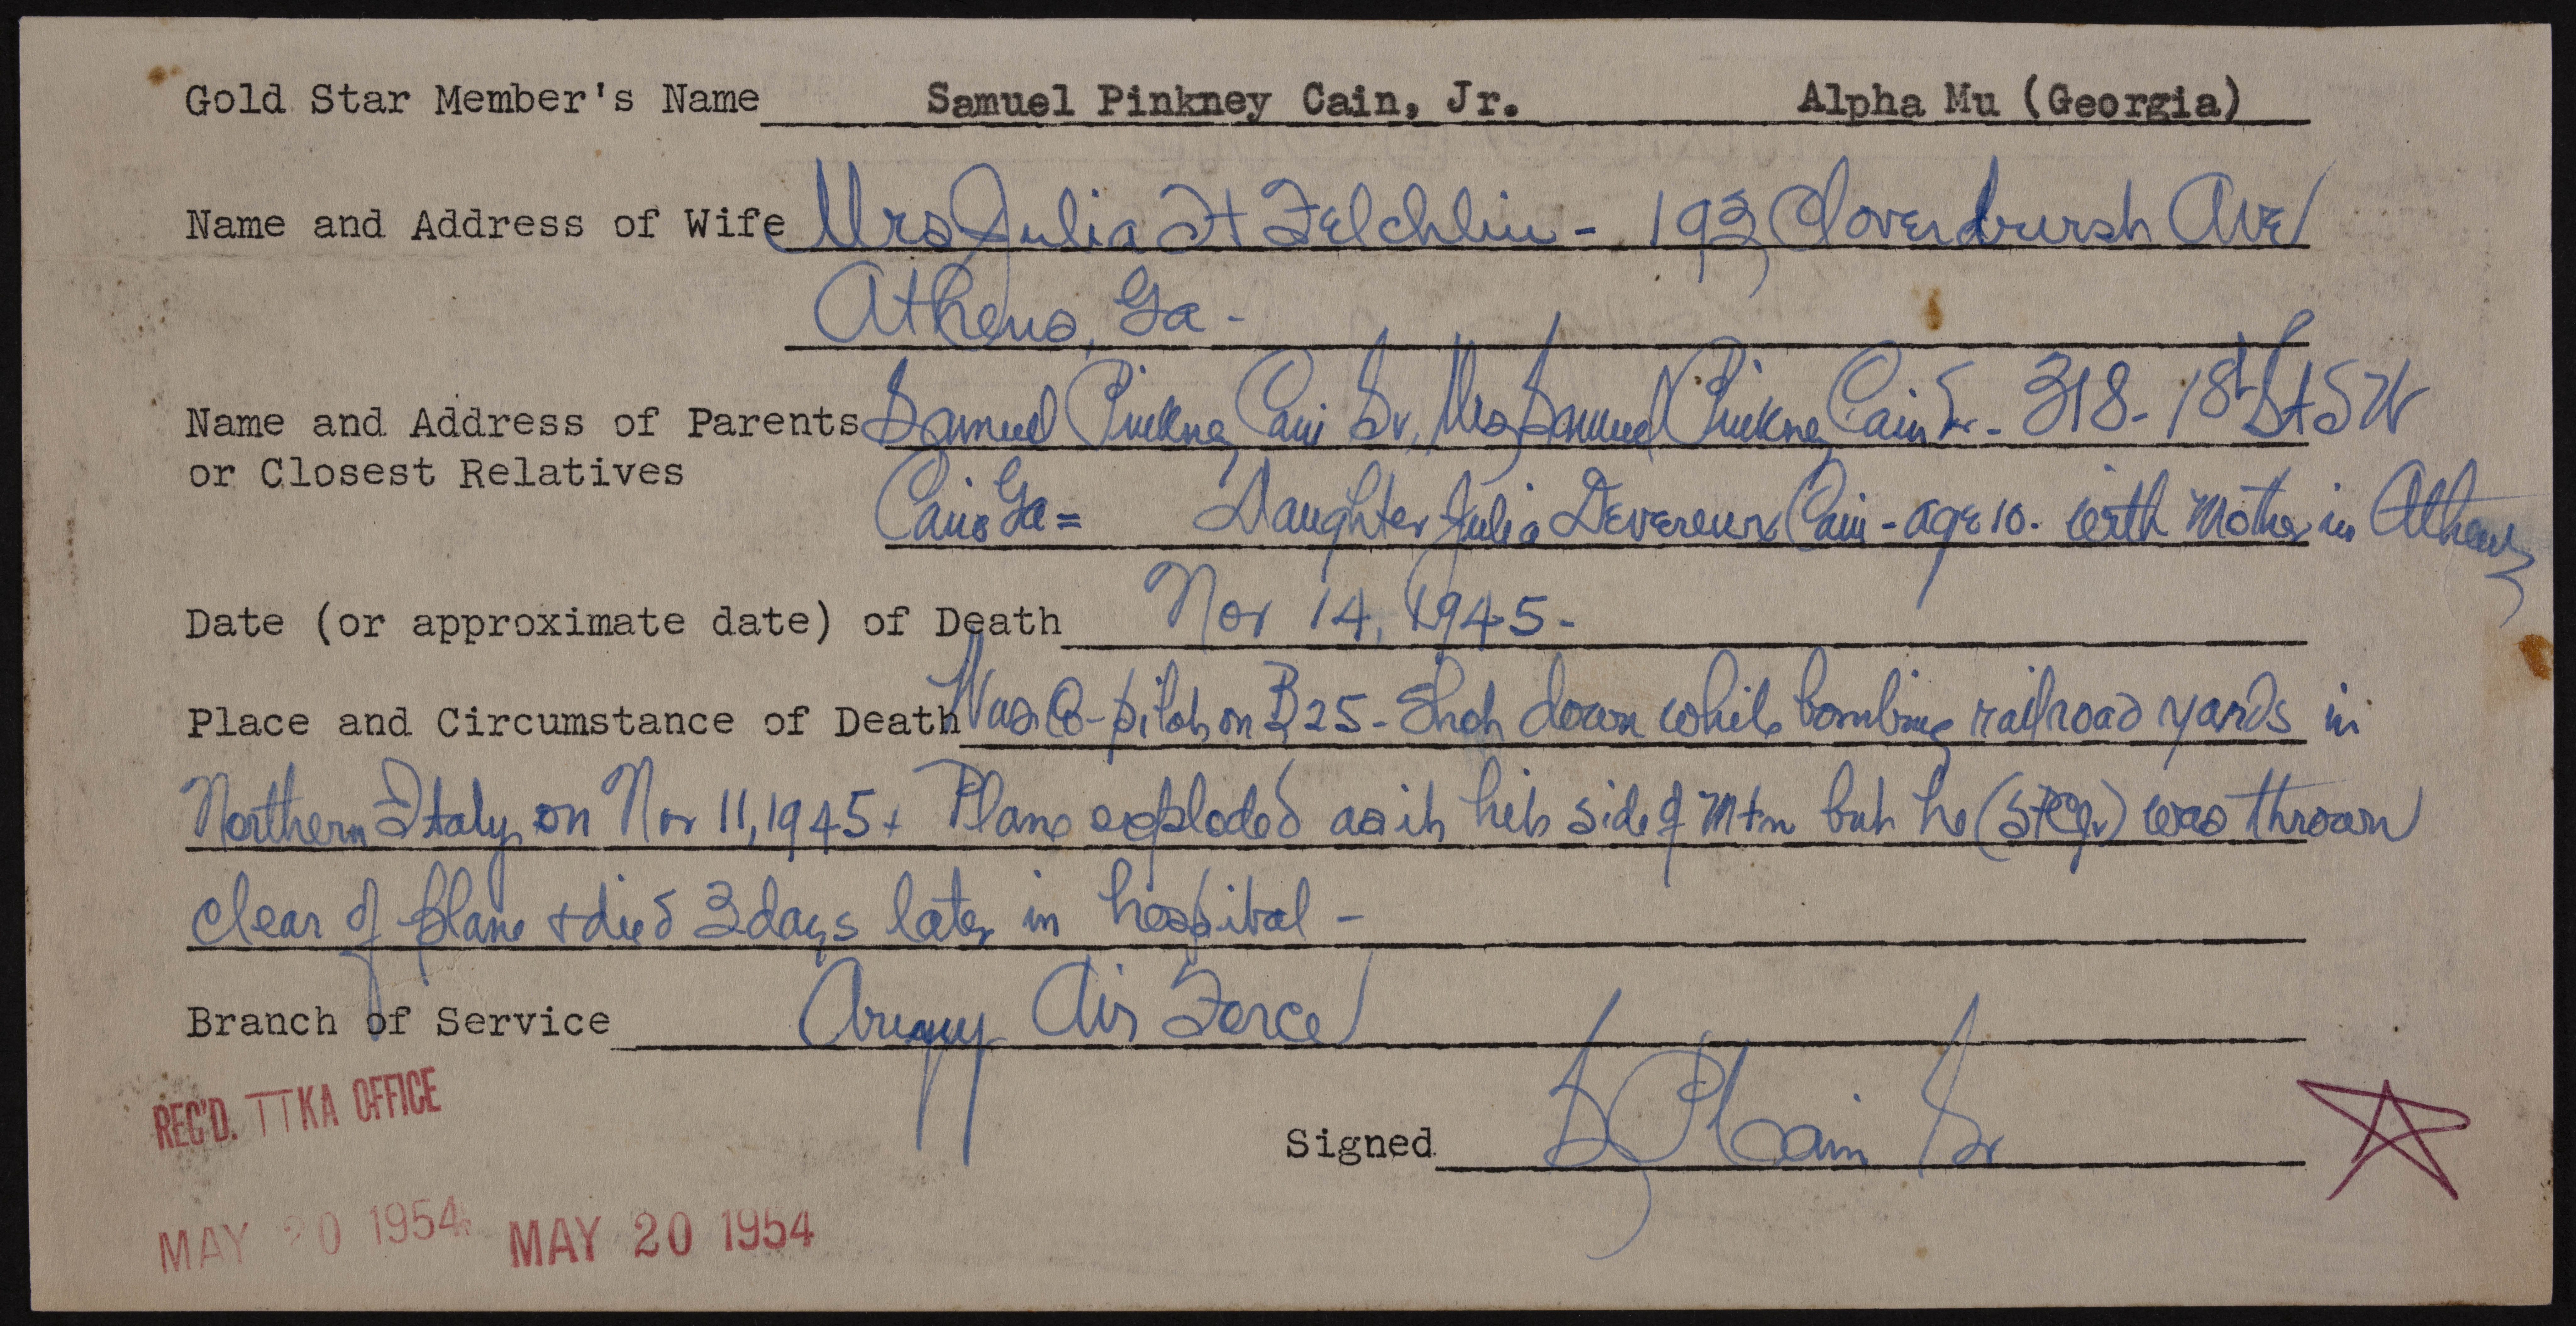 Gold Star Member's Name Samuel Pinkney Cain, Jr. Alpha Mu (Georgia)
Name and Address of Wife Mrs Julia H Felchlin - 193 Cloverhurst Ave
Athens, Ga -
Name and Address of Parents Samuel Pinkney Cain Sr, Mrs Samuel Pinkney Cain Sr - 318 - 18th St SW
or Closest Relatives
Cairo Ga = Daughter Julia Devereux Cain - age 10 - with Mother in Athens
Date (or approximate date) of Death Nov 14, 1945 -
Place and Circumstance of Death Was Co-pilot on B25 - Shot down while bombing railroad yards in
Northern Italy on Nov 11, 1945 + Plane exploded as it hit side of Mtn but he (SPCjr) was thrown
clear of plane + died 3 days later in hospital -
Branch of Service Army Air Force
REC'D. ΠKA OFFICE
Signed S P Cain Sr
MAY 20 1954 MAY 20 1954